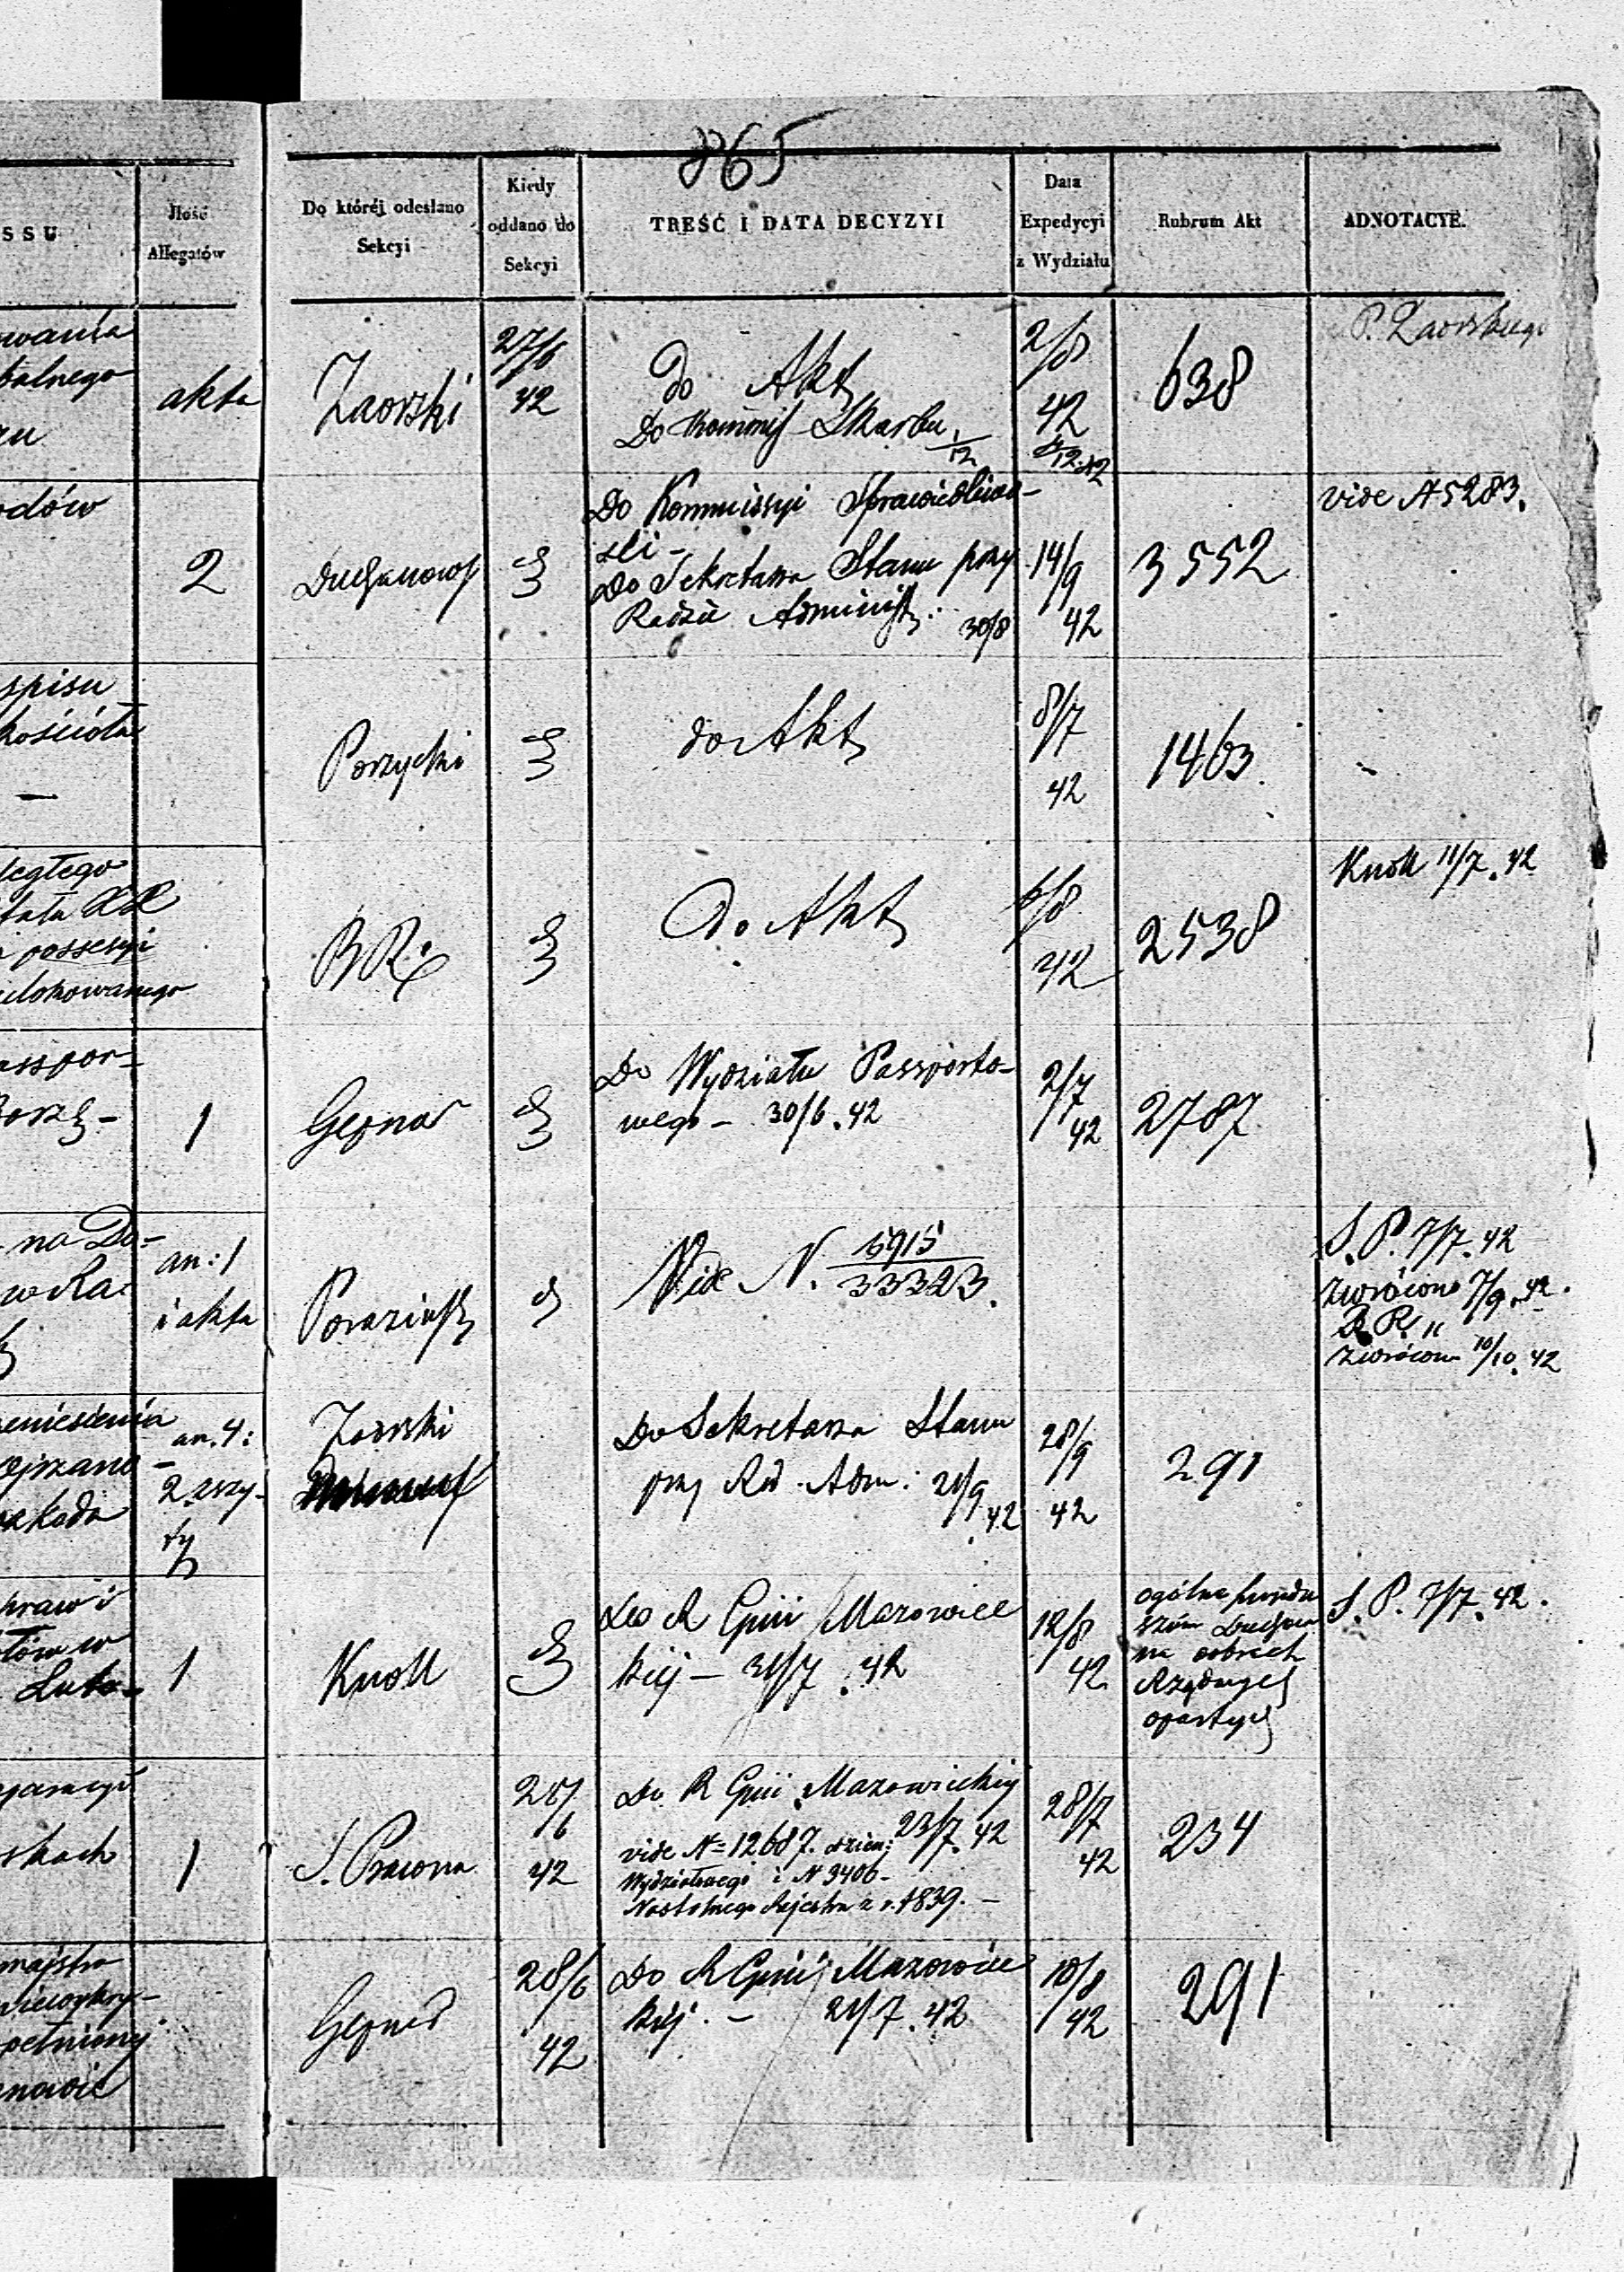 865
SSU
Ilość
Allegatów
Do któréj odesłano
Sekcyi
Kiedy
oddano do
Sekcyi
TREŚĆ I DATA DECYZYI
Data
Expedycyi
z Wydziału
Rubrum Akt
ADNOTACYE.
wania
talnego
ru
akta
Zaorski
27/6
42
do Akt
Do Kommis Skarbu 1/12
2/8
42
2/12.42
638
P. Zaorskiego
odów
2
Duchanows
Do Kommissyi Sprawiedliwo-
ści -
Do Sekretarza Stanu przy
Radzie Administ: 30/8
14/9
42
3552
vide N 5283.
spisu
kościoła
—
Porzycki
do Akt
8/7
42
1463
ległego
tału
possessyi
lokowanego
Do Akt
6/8
42
2538
Knoll 11/7.42
asspor-
1
Do Wydziału Passporto-
wego - 30/6.42
2/7
42
2787
na Do-
w Ra-
an: 1
i akta
Vide N. 5915/33323.
S. P. 7/7.42
zwrócono 7/9.42.
R. R. "
zwrócono 10/10.42
eniesienia
ejrzano-
akoda
an. 4:
2 zszy-
ty
Zaorski
Do Sekretarza Stanu
przy Rad. Adm: 21/9
42
28/9
42
291
praw i
łów w
Luto-
1
Knoll
Do R Gnii Mazowiec
kiej - 31/7.42
12/8
42
ogólne
na dobrach
Rządowych
opartych
S. P. 7/7.42.
skach
1
S. Prawna
28/6
42
Do R Gnii Mazowieckiej
23/7.42
vide N= 12687. dzien:
Wydziałowego i N 3406-
Nastolnego Rejestru z r. 1839. -
28/7
42
234
majstra
pełnionej
28/6
42
Do R Gnii Mazowiec
kiej. - 21/7.42
10/8
42
291